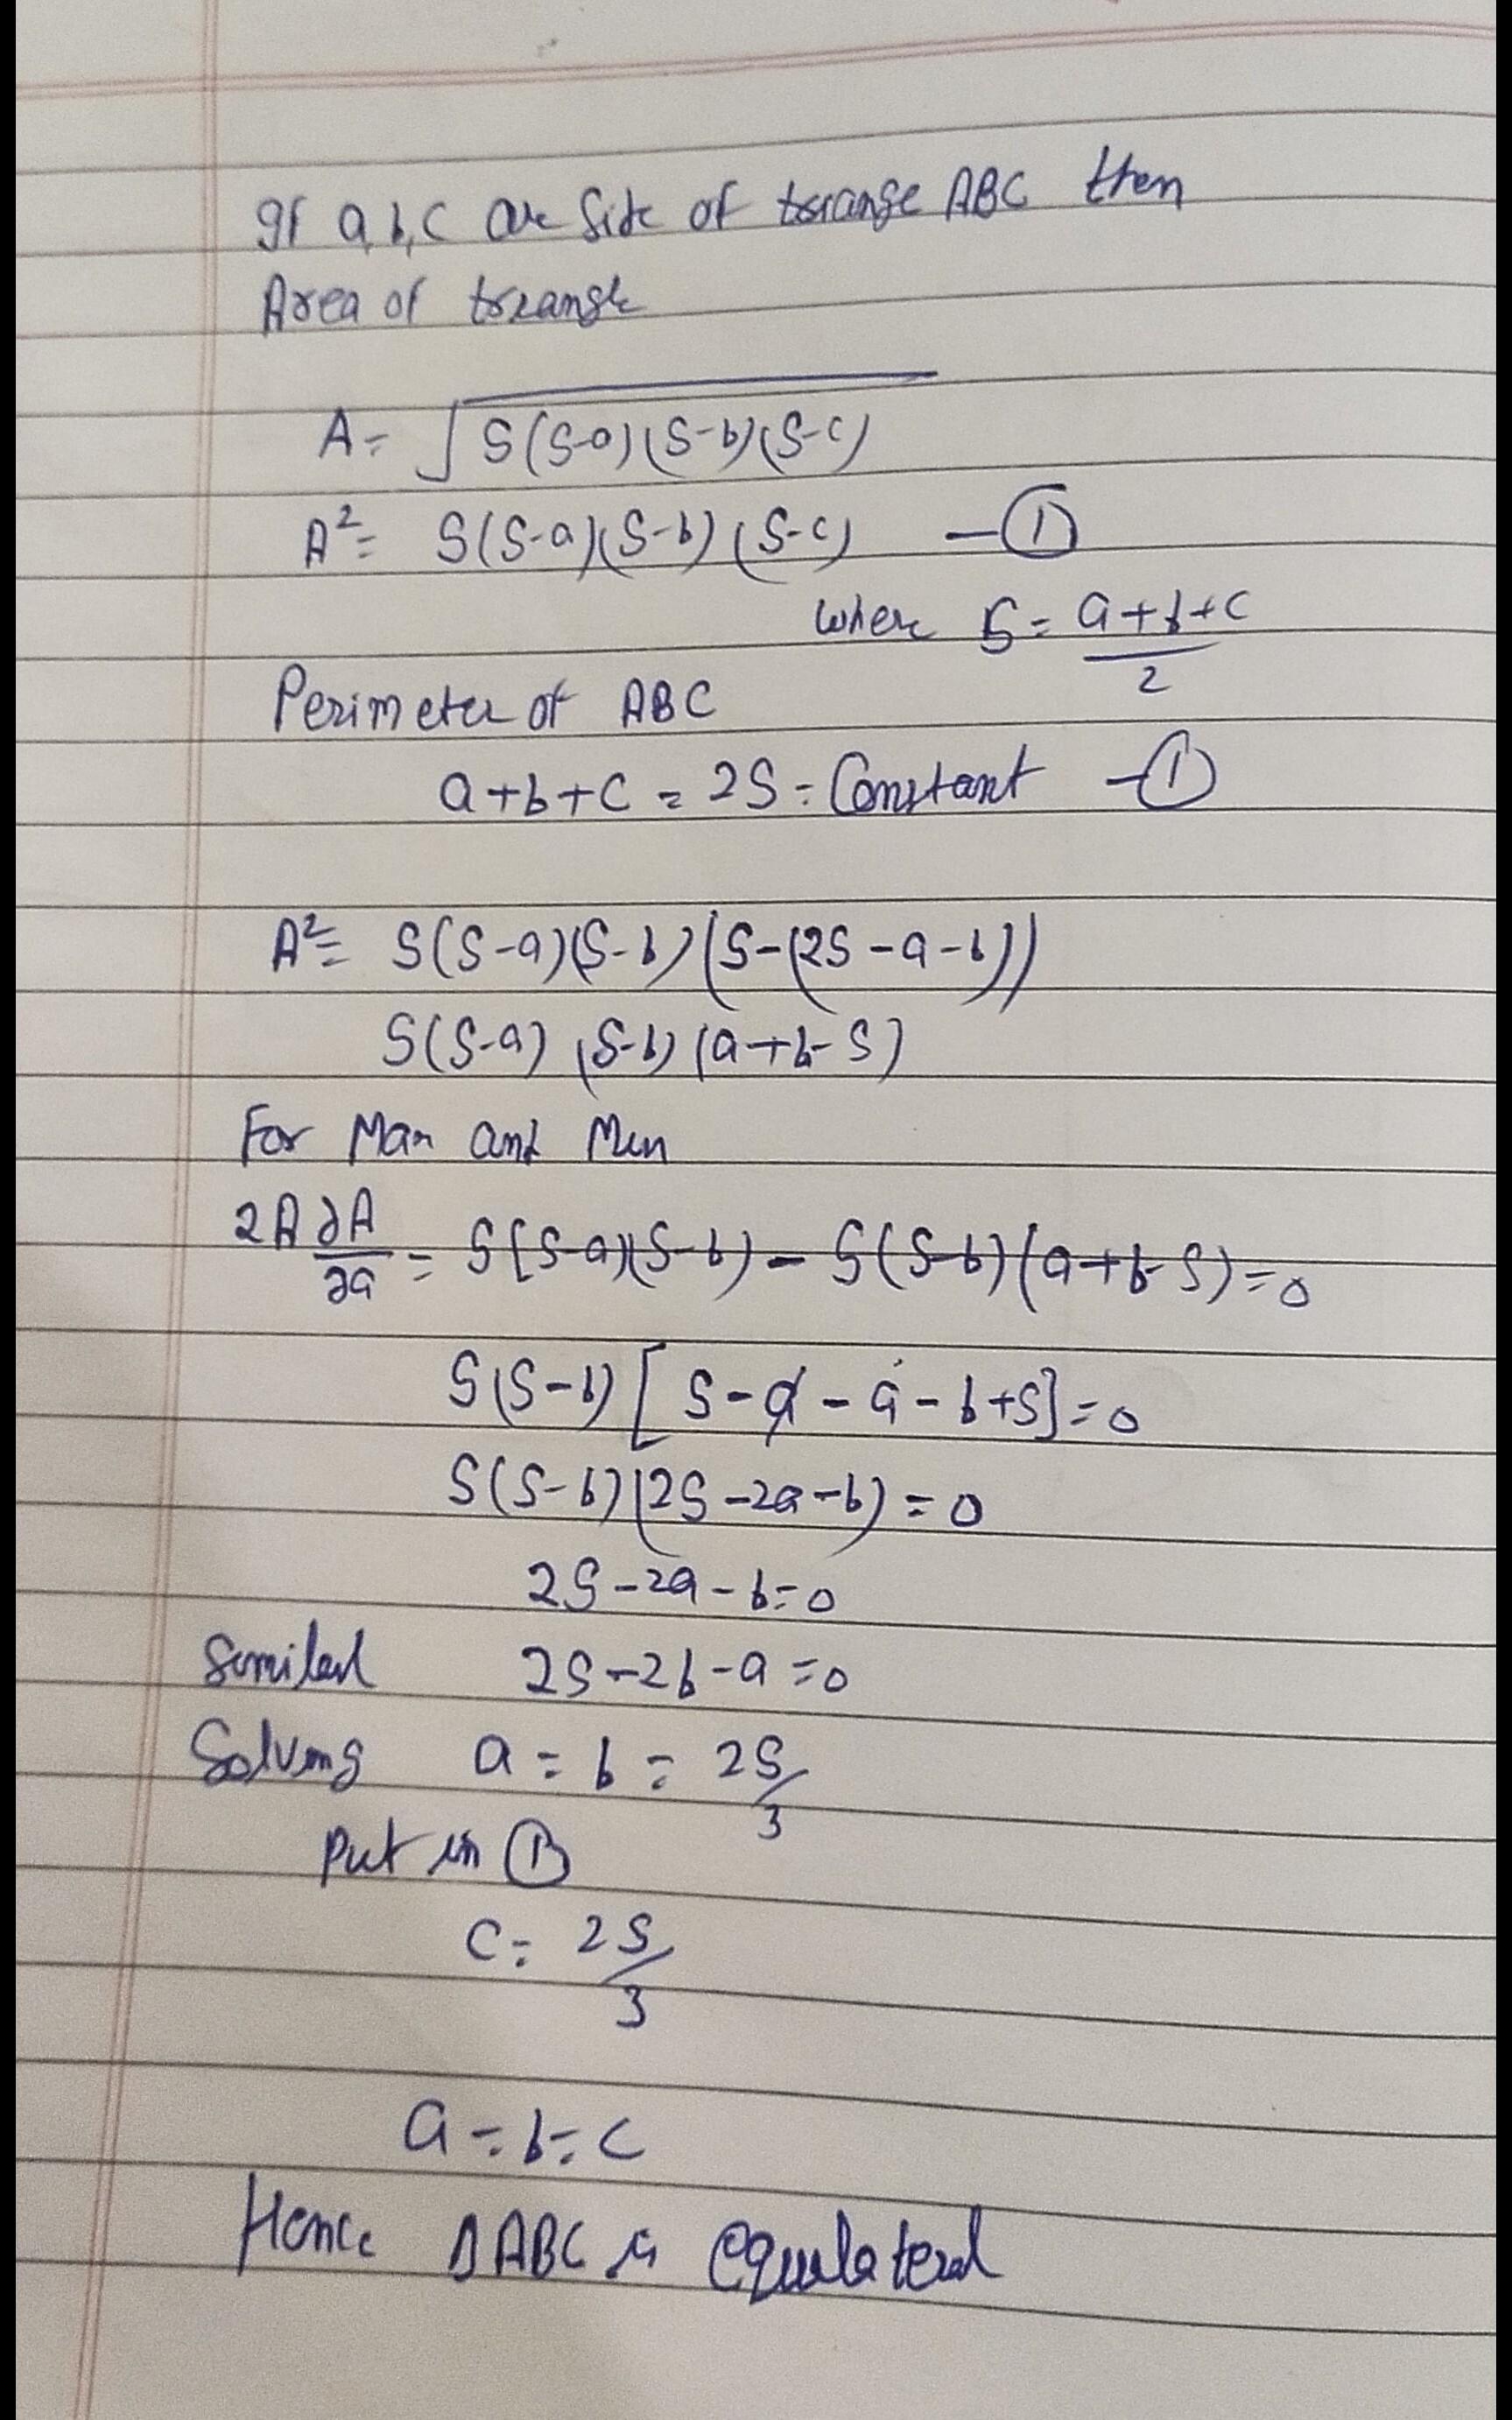 If a, b, c are side of triange ABC then
Area of triangle
A = √S(S-a)(S-b)(S-c)
A² = S(S-a)(S-b)(S-c) —①
where S = a+b+c/2
Perimeter of ABC
a+b+c = 2S = Constant —①
A² = S(S-a)(S-b)(S-(2S-a-b))
S(S-a)(S-b)(a+b-S)
For Max and Min
2A ∂A/∂a = S(S-a)(S-b) - S(S-b)(a+b-S) = 0
S(S-b)[S-a-a-b+S] = 0
S(S-b)(2S-2a-b) = 0
2S-2a-b = 0
2S-2b-a = 0
Solving a = b = 2S/3
Put in ①
C = 2S/3
a = b = c
Hence ΔABC is equilateral